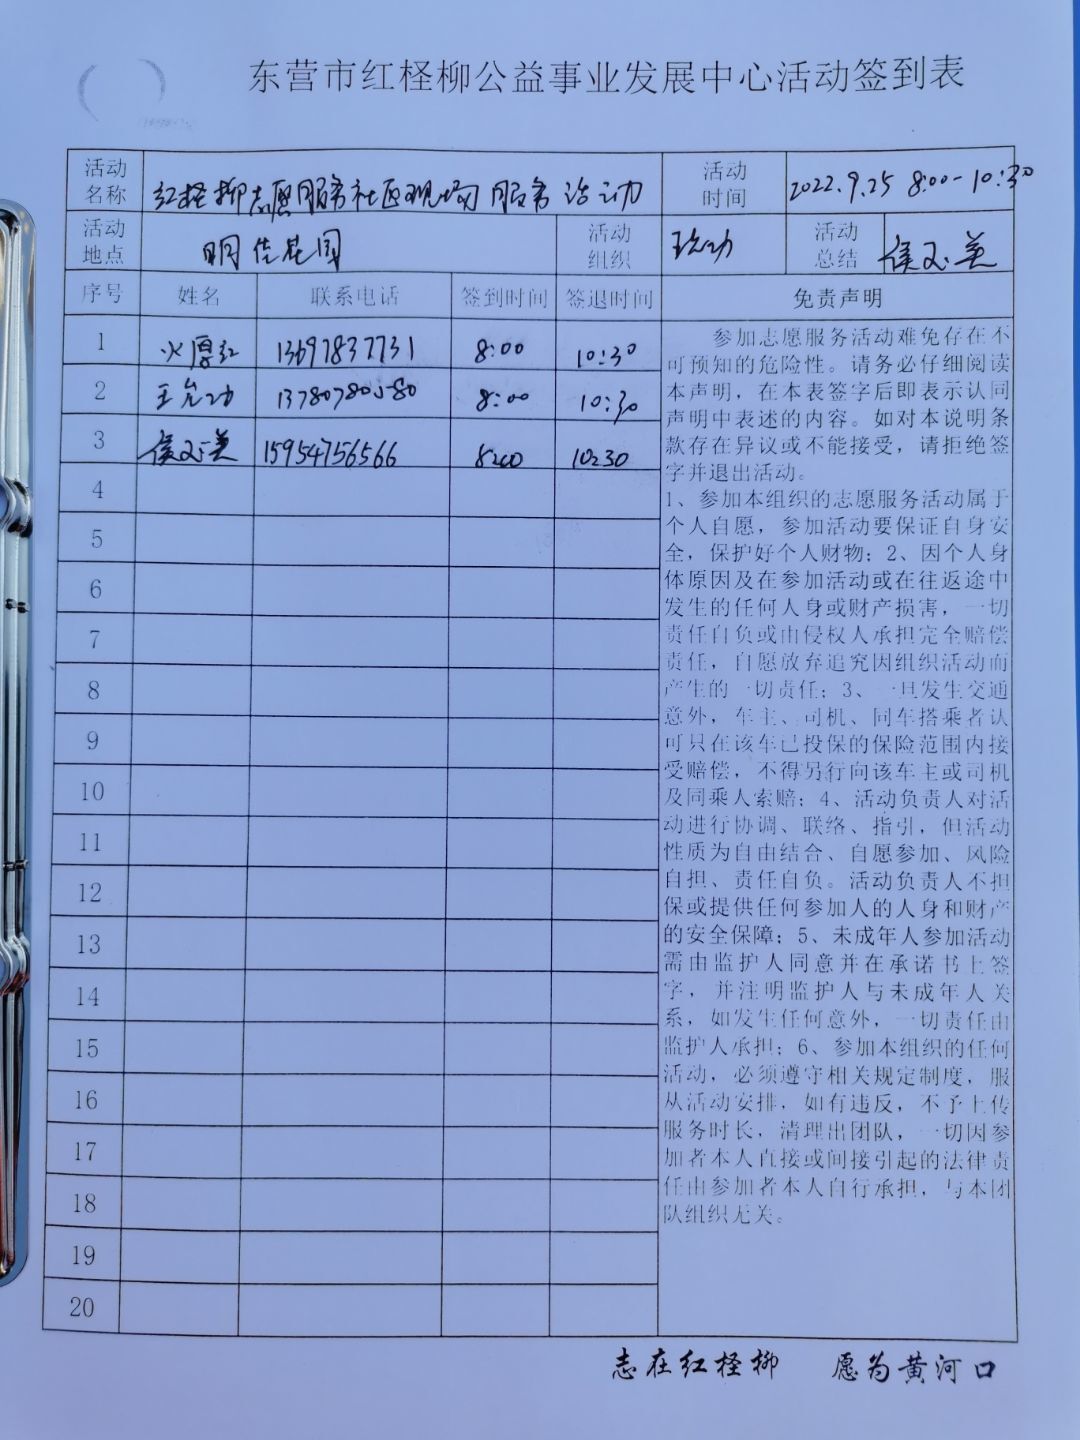 东营市红柽柳公益事业发展中心活动签到表
活动名称 红柽柳志愿服务社区现场服务活动 活动时间 2022.9.25 8:00-10:30
活动地点 明佳花园 活动组织 活动总结 侯玉英
序号 姓名 联系电话 签到时间 签退时间 免责声明
1 13697837731 8:00 10:30
2 王允功 13780780580 8:00 10:30
3 侯玉英 15954756566 8:00 10:30
4
5
6
7
8
9
10
11
12
13
14
15
16
17
18
19
20
参加志愿服务活动难免存在不
可预知的危险性。请务必仔细阅读
本声明，在本表签字后即表示认同
声明中表述的内容。如对本说明条
款存在异议或不能接受，请拒绝签
字并退出活动。
1、参加本组织的志愿服务活动属于
个人自愿，参加活动要保证自身安
全，保护好个人财物；2、因个人身
体原因及在参加活动或在往返途中
发生的任何人身或财产损害，一切
责任自负或由侵权人承担完全赔偿
责任，自愿放弃追究因组织活动而
产生的一切责任；3、一旦发生交通
意外，车主、司机、同车搭乘者认
可只在该车已投保的保险范围内接
受赔偿，不得另行向该车主或司机
及同乘人索赔；4、活动负责人对活
动进行协调、联络、指引，但活动
性质为自由结合、自愿参加、风险
自担、责任自负。活动负责人不担
保或提供任何参加人的人身和财产
的安全保障；5、未成年人参加活动
需由监护人同意并在承诺书上签
字，并注明监护人与未成年人关
系，如发生任何意外，一切责任由
监护人承担；6、参加本组织的任何
活动，必须遵守相关规定制度，服
从活动安排，如有违反，不予上传
服务时长，清理出团队，一切因参
加者本人直接或间接引起的法律责
任由参加者本人自行承担，与本团
队组织无关。
志在红柽柳 愿为黄河口